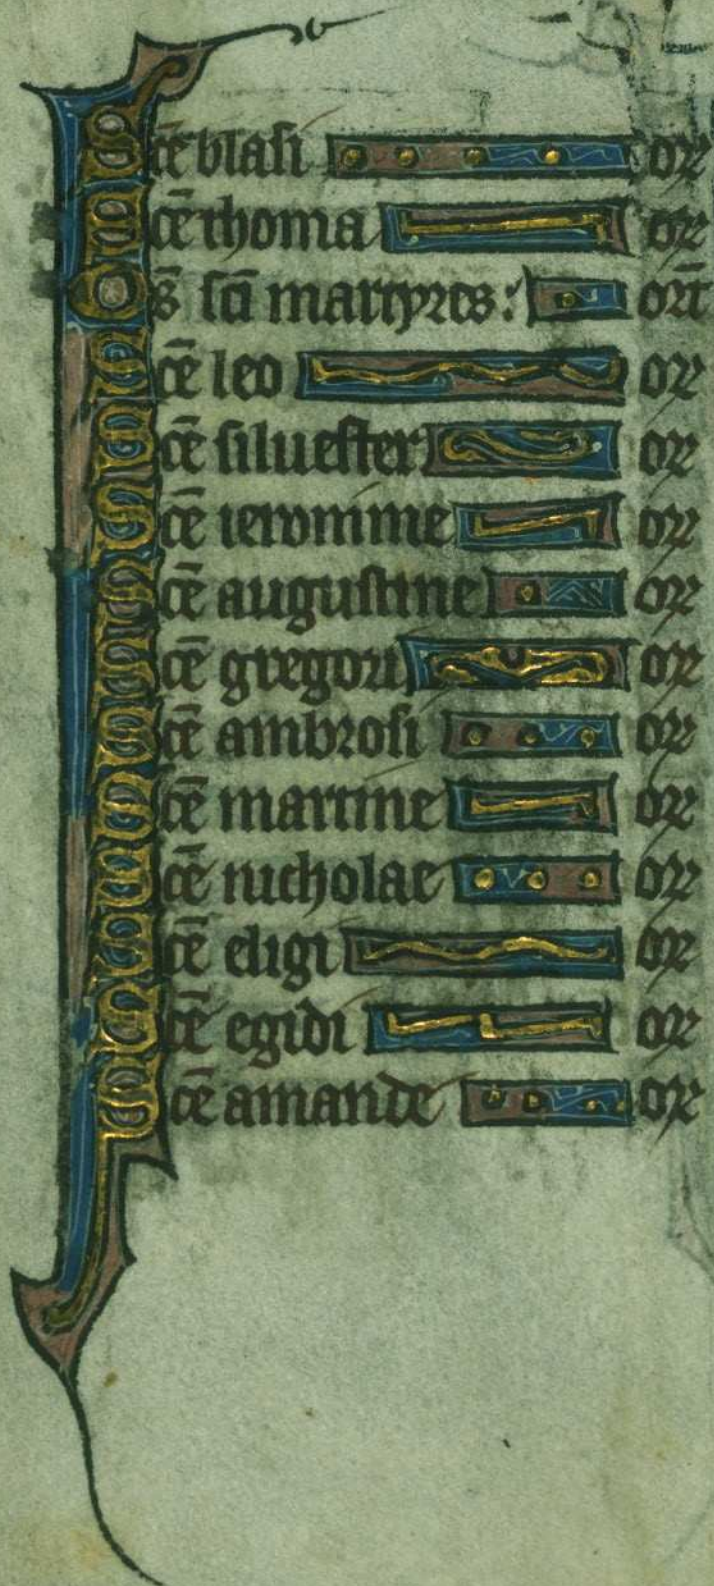 Scē blasi or
Scē thoma or
Om̄s sc̄i martyres: orat̄
Scē leo or
Scē siluester or
Scē ieronime or
Scē augustine or
Scē gregori or
Scē ambrosi or
Scē martine or
Scē nicholae or
Scē eligi or
Scē egidi or
Scē amande or